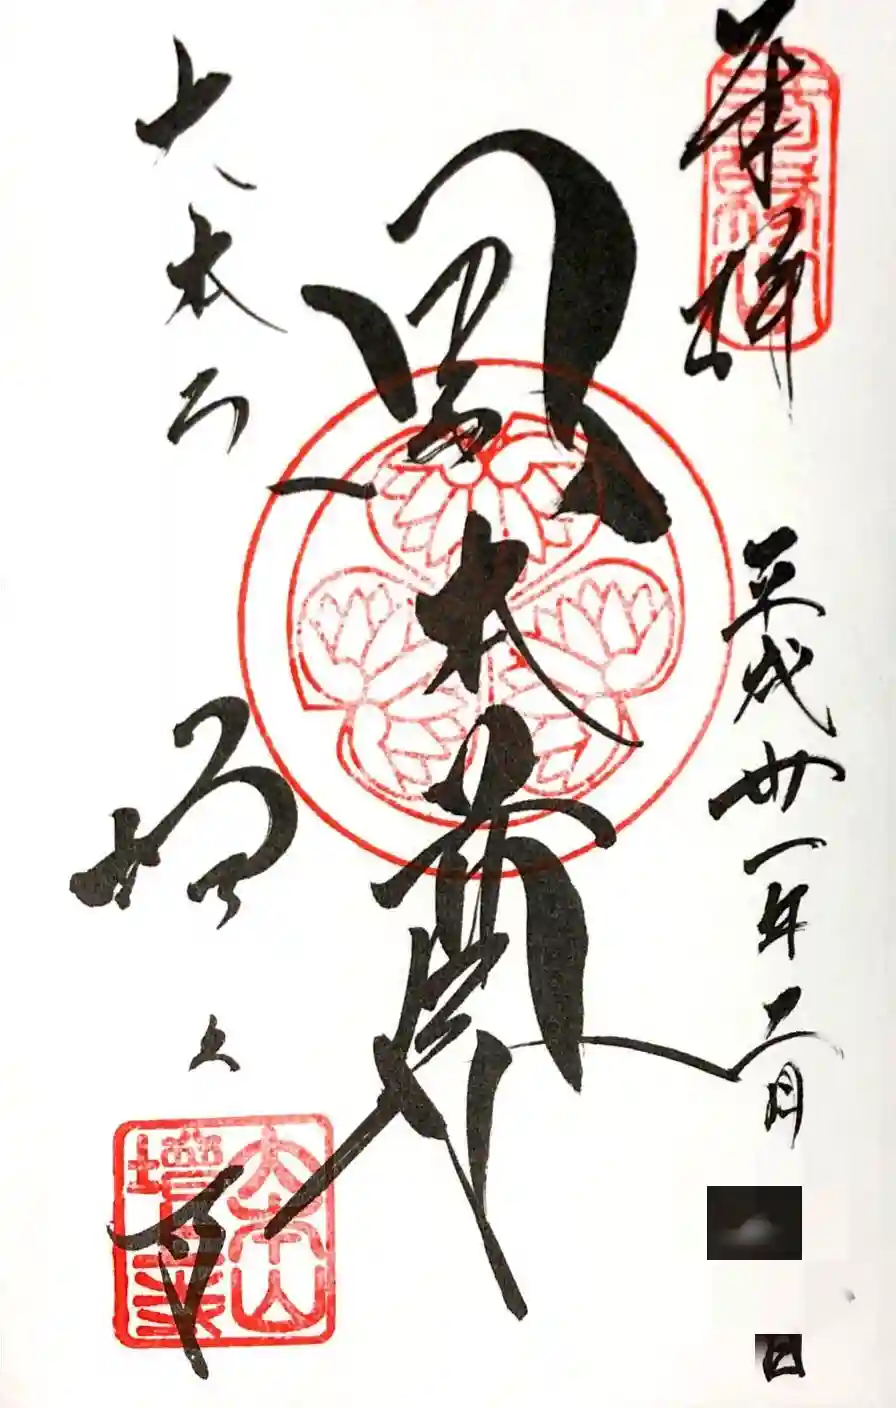 奉拝
平成卅一年二月
日
黒本尊
大本山
増上寺
大本山
増上寺